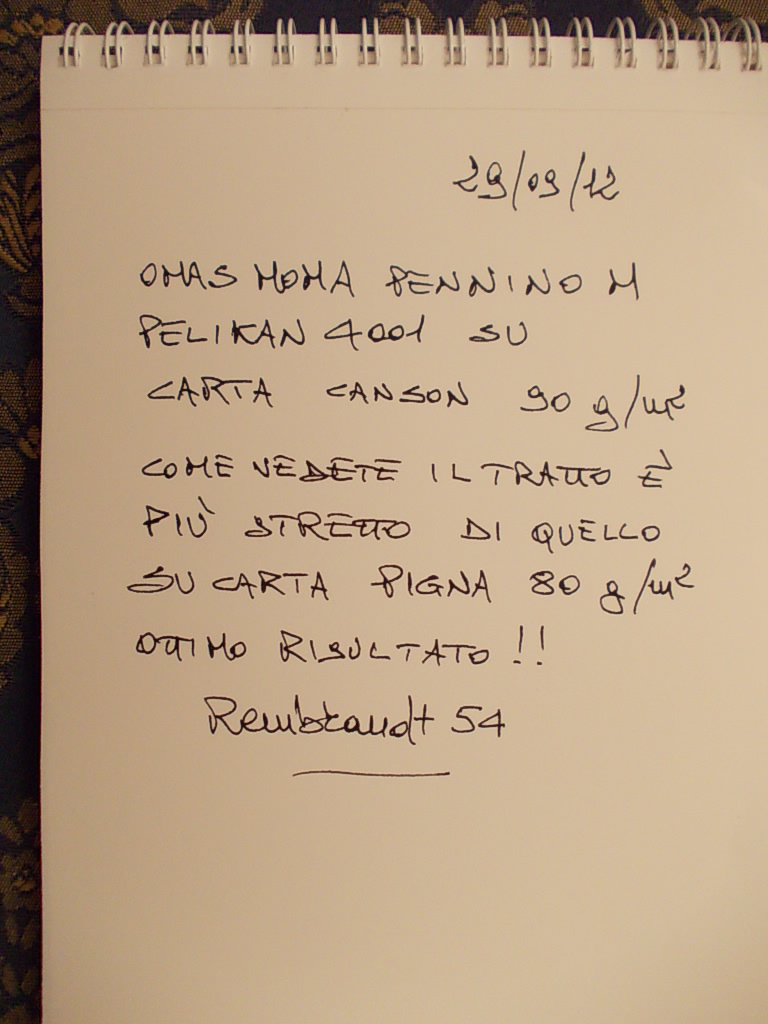 29/09/12
OMAS MOMA PENNINO M
PELIKAN 4001 SU
CARTA CANSON 90 g/m²
COME VEDETE IL TRATTO È
PIÙ STRETTO DI QUELLO
SU CARTA PIGNA 80 g/m²
OTTIMO RISULTATO!!
Rembrandt 54